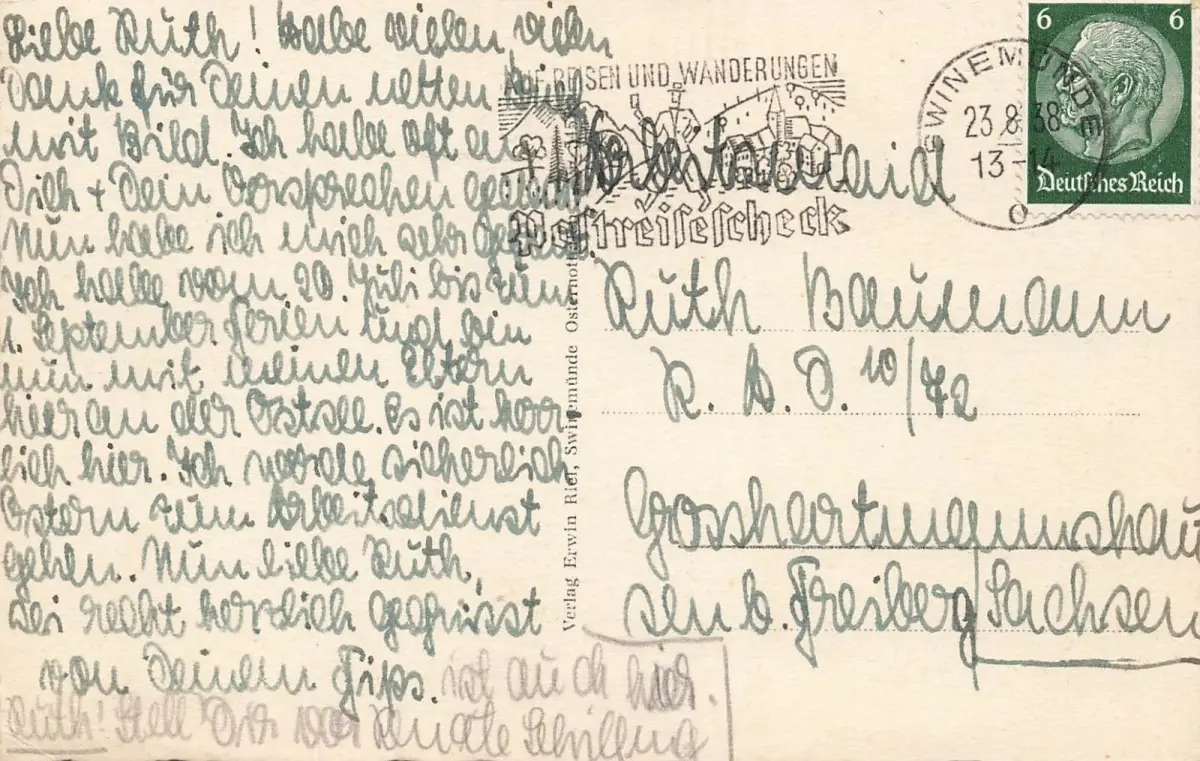 Liebe Ruth! Habe vielen vielen
Dank für Deinen netten
mit Bild. Ich habe oft an
Dich + Dein Versprechen
Nun habe ich mich sehr
Ich habe vom 20. Juli bis zum
1. September Ferien und bin
nun mit meinen Eltern
hier an der Ostsee. Es ist herr
lich hier. Ich werde sicherlich
Ostern zum Arbeitsdienst
gehen. Nun liebe Ruth,
sei recht herzlich gegrüsst
von Deinem Fips.
Ruth! Stell Dir vor Renate Schilling
ist auch hier.
Verlag Erwin Riel, Swinemünde Osternothafen
AUF REISEN UND WANDERUNGEN
Postreisescheck
SWINEMÜNDE
23.8.38
13-14
o
6 6
Deutsches Reich
Arbeitsmaid
Ruth Baumann
R. A. D. 10/72
Grosshartmannshau
sen b. Freiberg
Sachsen